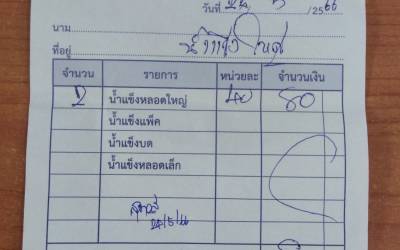 วันที่ 24 / 5 / 2566
นาม
ที่อยู่
จำนวน รายการ หน่วยละ จำนวนเงิน
2 น้ำแข็งหลอดใหญ่ 40 80
น้ำแข็งแพ็ค
น้ำแข็งบด
น้ำแข็งหลอดเล็ก
24/5/66